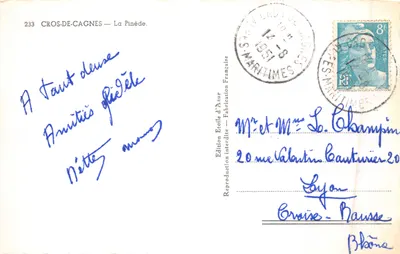 233 CROS-DE-CAGNES — La Pinède
A tant deuse
Amitiés fidèle
Edition Etoile d'Azur
Reproduction interdite - Fabrication Française
14-8
1951
S-MARITIMES
8F
RF
Mr et Mme L. Champin
20 rue Valentin Couturier 20
Lyon
Croise-Rousse
Rhône